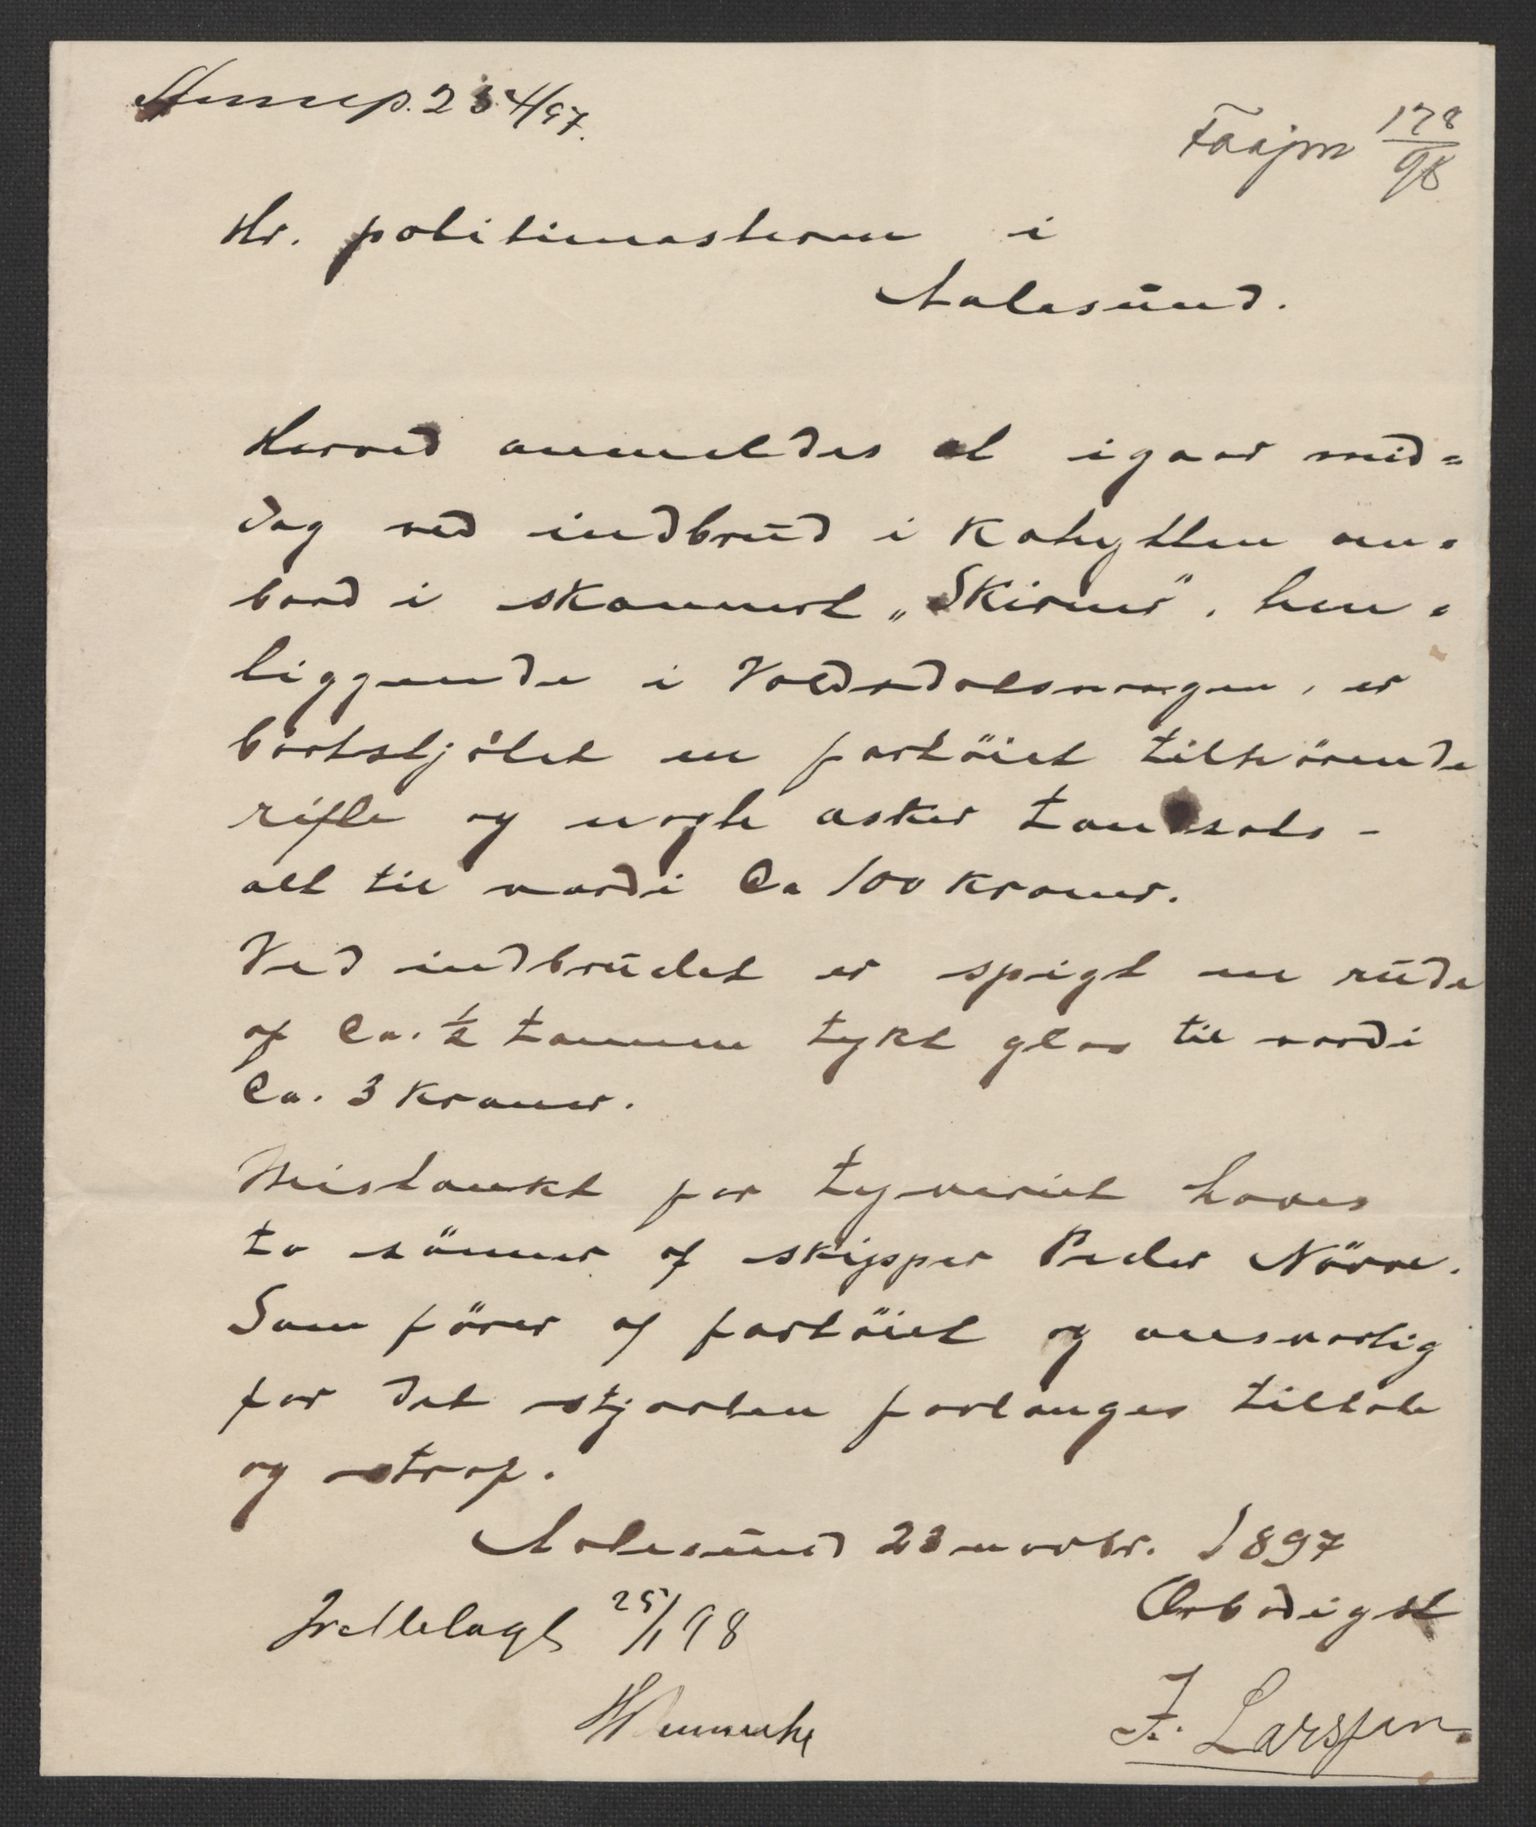 234/97.
178/98
Hr. politimesteren i
Aalesund.
Herved anmeldes at igaar mid=
dag ved indbrud i kahytten om=
bord i skonnert „Skirner“, hen=
liggende i Voldsdalsvaagen, er
bortstjålet en fartöiet tilhörende
rifle og nogle æsker
alt til værdi Ca 100 kroner.
Ved indbrudet er en rude
af Ca. ½ tomme tykt glas til værdi
Ca. 3 kroner.
Mistænkt for tyveriet haves
to sönner af skipper Peder Nörve.
Som förer af fartöiet og ansvarlig
for det stjaalne forlanges tiltale
og straf.
Aalesund 23 novbr. 1897
Ærbødigst
Irettelagt 25/1 98
F. Larssen.